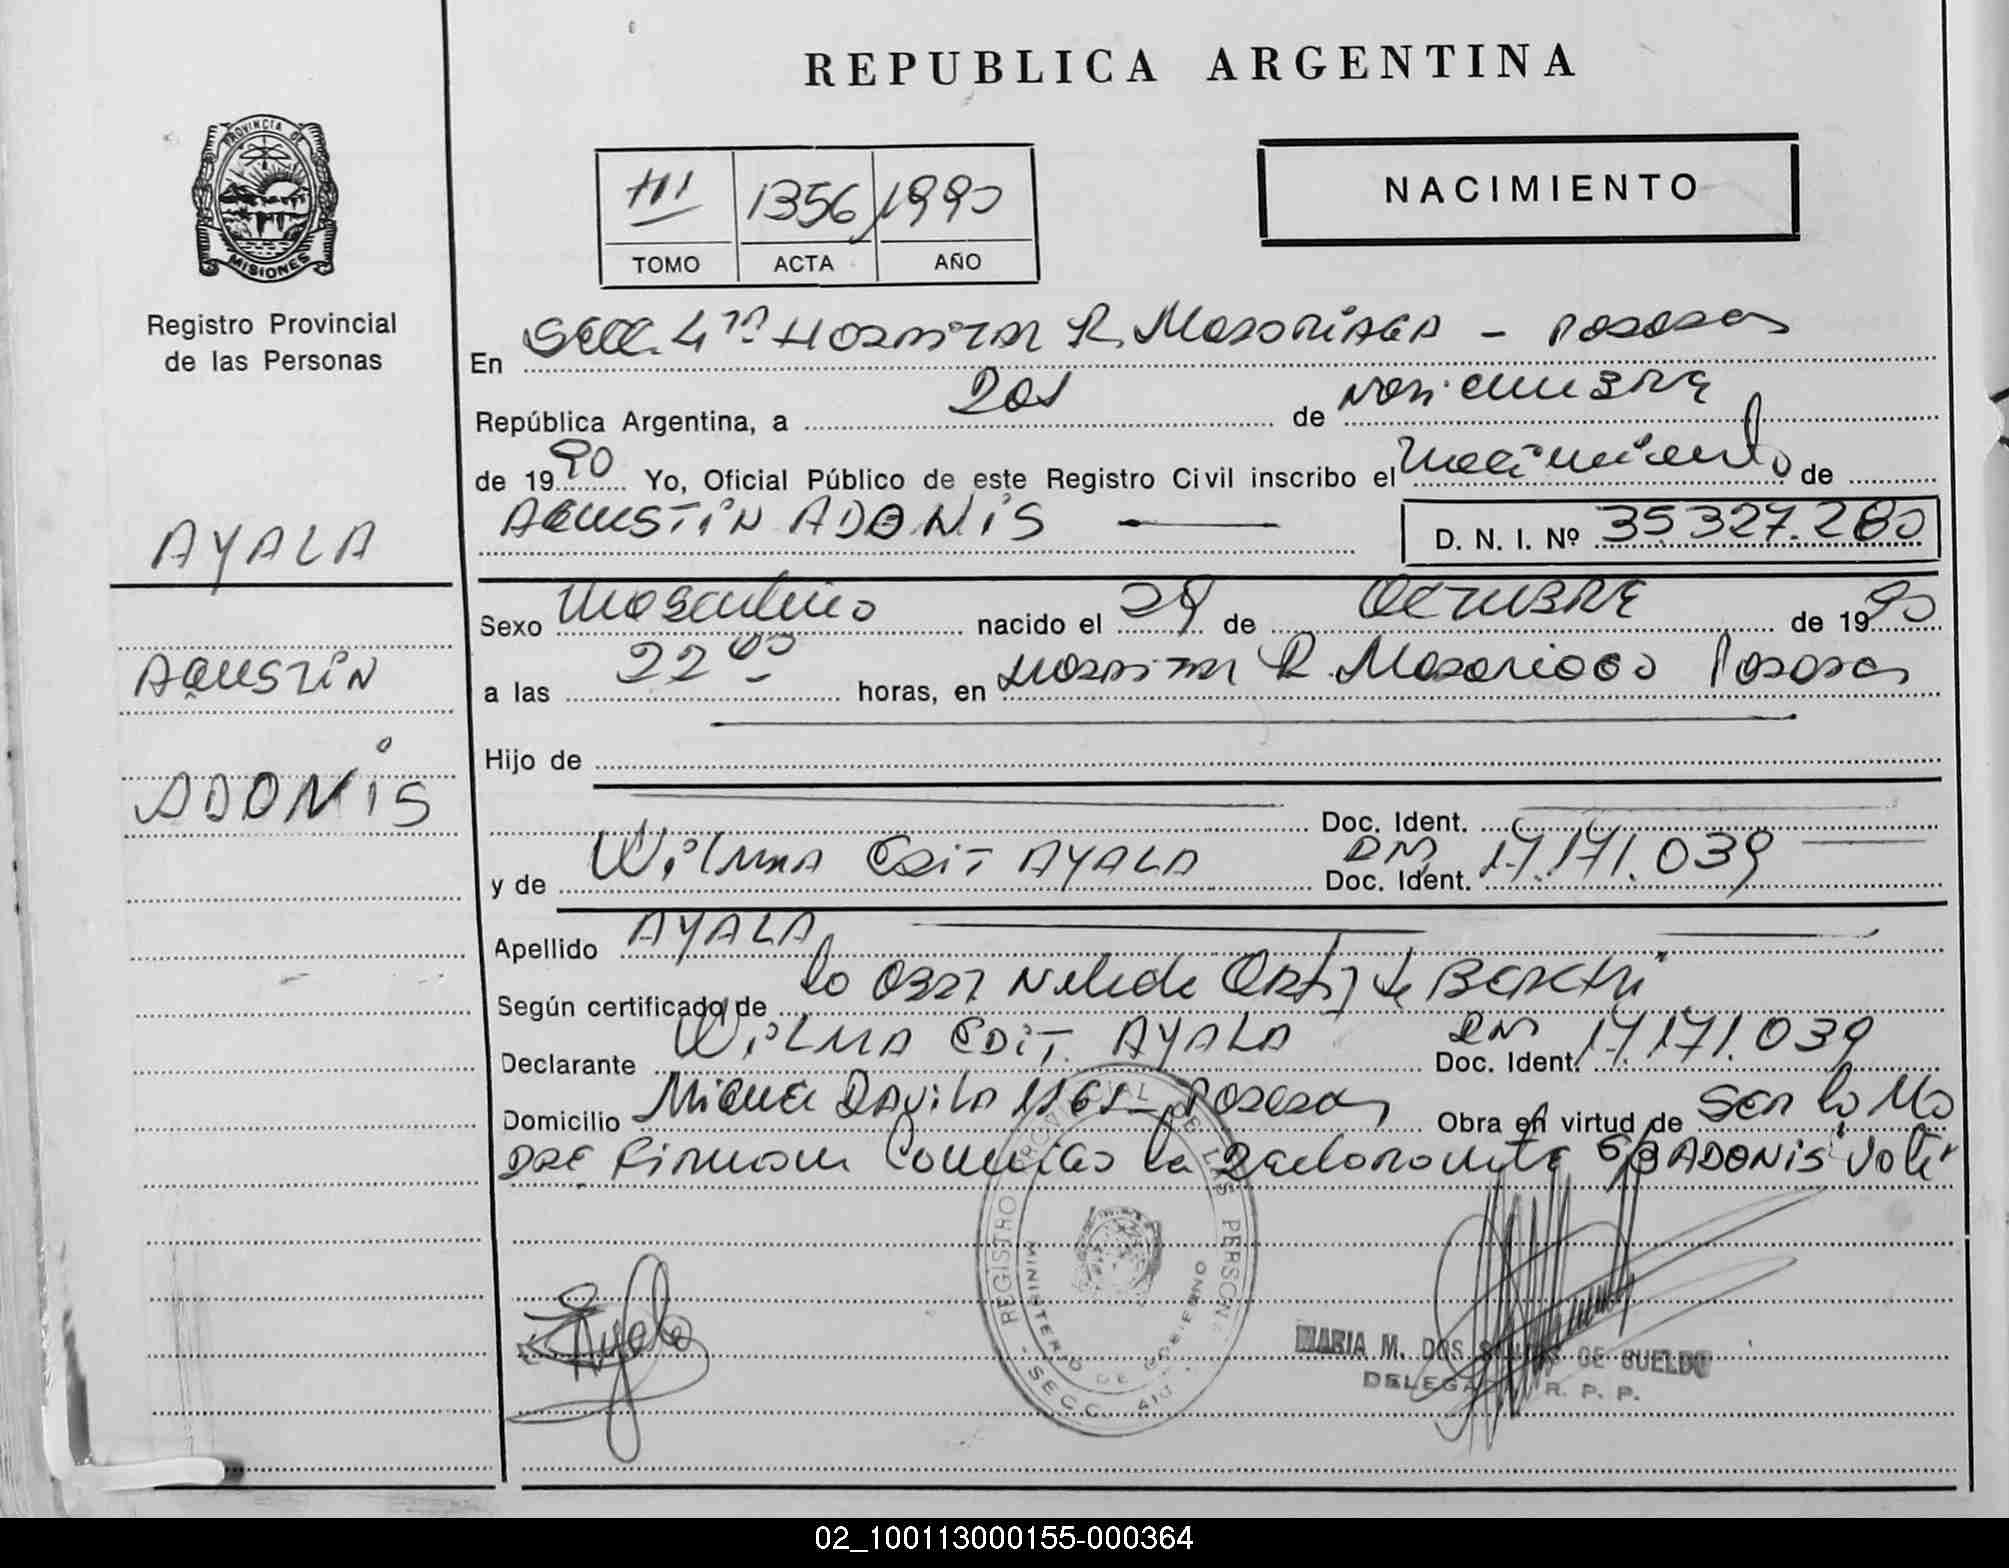 REPUBLICA ARGENTINA
PROVINCIA DE
MISIONES
Registro Provincial
de las Personas
III 1356 1990
TOMO ACTA AÑO
NACIMIENTO
En Secc. 4ta Hospital R. Madariaga - Posadas
República Argentina, a Dos de Noviembre
de 1990 Yo, Oficial Público de este Registro Civil inscribo el nacimiento de
AGUSTIN ADONIS D. N. I. Nº 35327.280
AYALA
AGUSTIN
ADONIS
Sexo Masculino nacido el 29 de OCTUBRE de 1990
a las 22 00 horas, en Hospital R. Madariaga Posadas
Hijo de
Doc. Ident.
y de WILMA EDIT AYALA DNI
Doc. Ident. 17.171.039
Apellido AYALA
Según certificado de la Obst Nelida Ortiz de
Declarante WILMA EDIT AYALA DNI
Doc. Ident. 17.171.039
Domicilio Miguel Davila Posadas Obra en virtud de Ser la Ma
dre Firman Conmigo la Declarante S/B ADONIS Vale
Ayala
REGISTRO PROVINCIAL DE LAS PERSONAS
MINISTERIO DE GOBIERNO
SECC. 4ta
MARIA M. DOS SANTOS DE SUELDO
DELEGADA R. P. P.
02_100113000155-000364